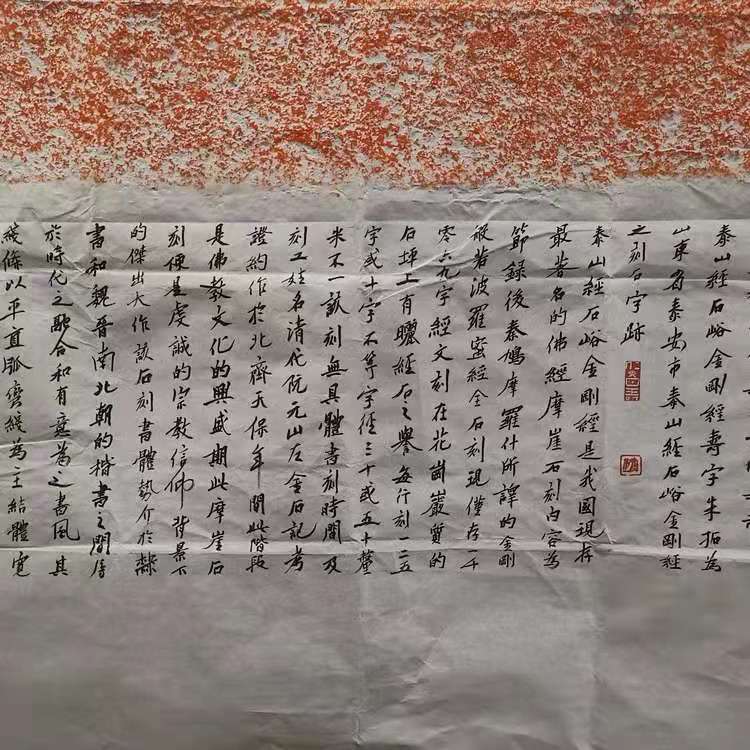 泰山經石峪金剛經壽字朱拓為
山東省泰安市泰山經石峪金剛經
之刻石字跡
泰山經石峪金剛經是我國現存
最著名的佛經摩崖石刻內容為
節錄後秦鳩摩羅什所譯的金剛
般若波羅蜜經全石刻現僅存一千
零六九字經文刻在花崗巖質的
石坪上有曬經石之譽每行刻一二五
字或十字不等字徑三十或五十釐
米不一該刻無具體書刻時間及
刻工姓名清代阮元山左金石記考
證約作於北齊天保年間此階段
是佛教文化的興盛期此摩崖石
刻便是虔誠的宗教信仰背景下
的傑出大作該石刻書體勢介於隸
書和魏晉南北朝的楷書之間居
於時代之融合和有意為之書風其
綫條以平直弧彎綫為主結體寬